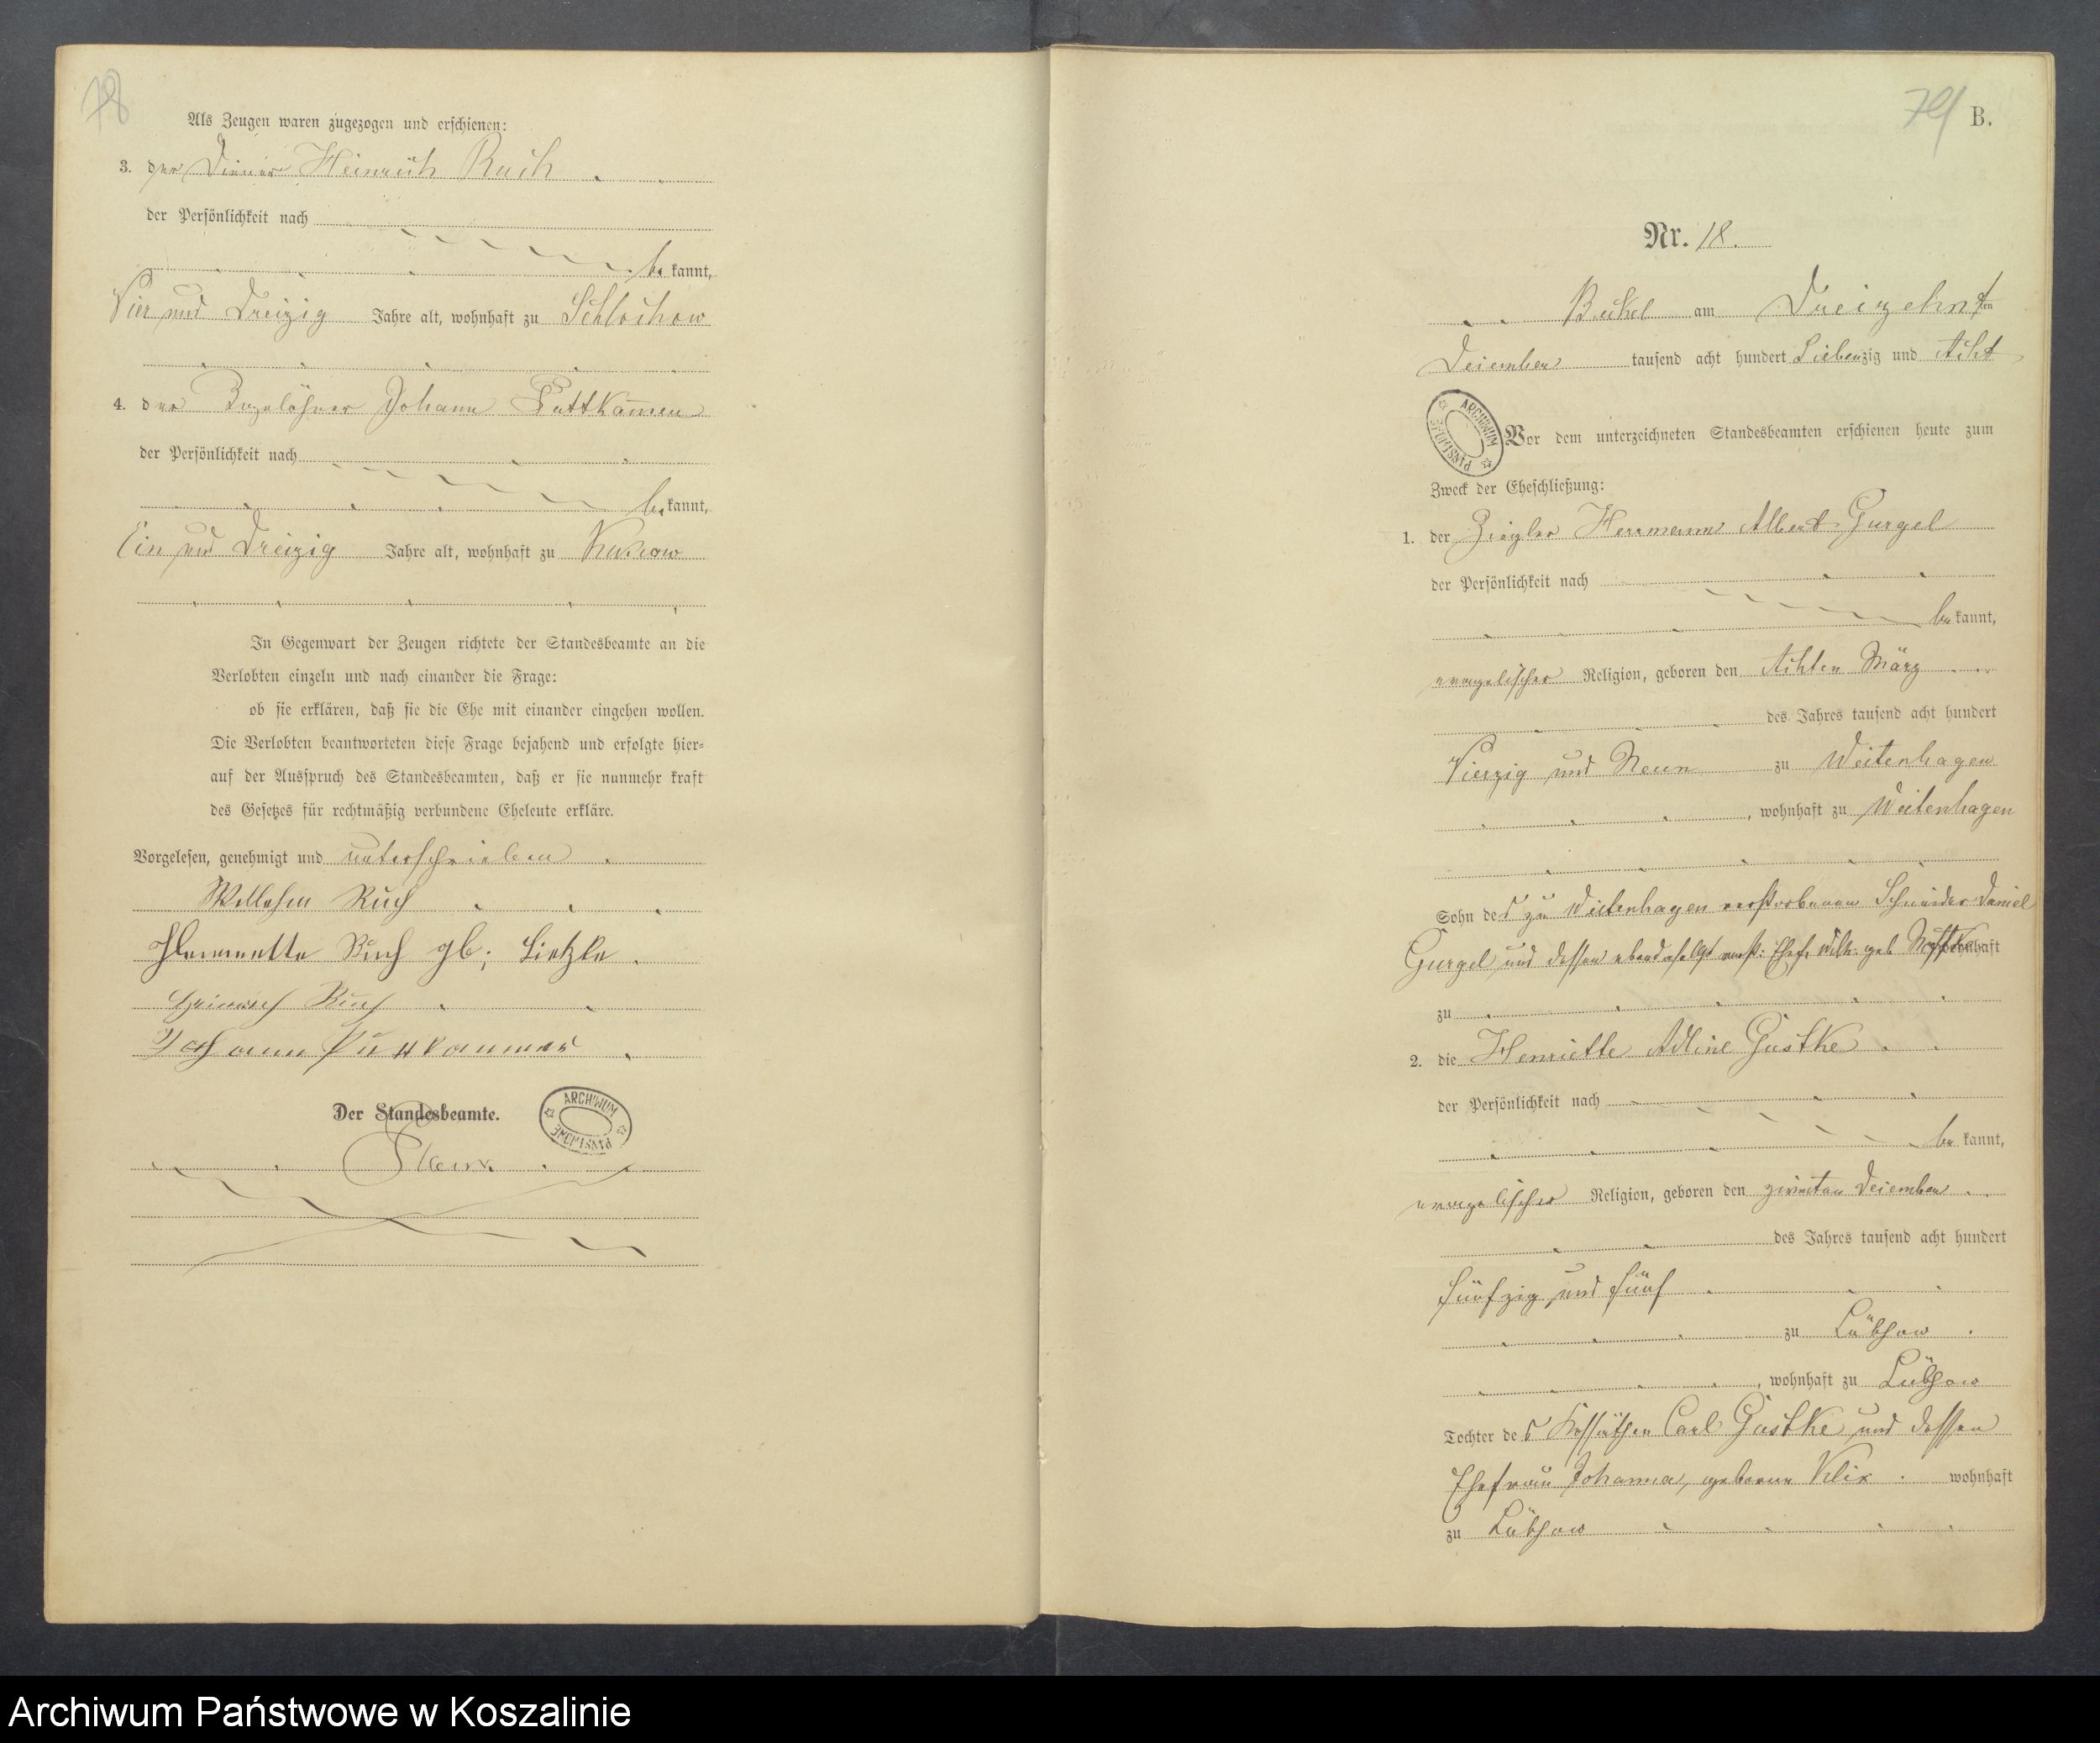 78
Als Zeugen waren zugezogen und erschienen:
3. der Diener Heinrich Ruch
der Persönlichkeit nach
be kannt,
Vier und Dreizig Jahre alt, wohnhaft zu Schlochow
4. der Johann Puttkamer
der Persönlichkeit nach
be kannt,
Ein und Dreizig Jahre alt, wohnhaft zu
In Gegenwart der Zeugen richtete der Standesbeamte an die
Verlobten einzeln und nach einander die Frage:
ob sie erklären, daß sie die Ehe mit einander eingehen wollen.
Die Verlobten beantworteten diese Frage bejahend und erfolgte hier=
auf der Ausspruch des Standesbeamten, daß er sie nunmehr kraft
des Gesetzes für rechtmäßig verbundene Eheleute erkläre.
Vorgelesen, genehmigt und unterschrieben
Willhelm Ruch
Ruch gb: Lietzke.
Heinrich Ruch
Johann Puttkammer
Der Standesbeamte.
ARCHIWUM PAŃSTWOWE
79 B.
Nr. 18.
am Dreizehnten
Dezember tausend acht hundert Siebenzig und Acht
ARCHIWUM PAŃSTWOWE
Vor dem unterzeichneten Standesbeamten erschienen heute zum
Zweck der Eheschließung:
1. der Ziegler Herrmann Albert Gurgel
der Persönlichkeit nach
be kannt,
evangelischer Religion, geboren den Achten März
des Jahres tausend acht hundert
Vierzig und Neun zu Weitenhagen
, wohnhaft zu Weitenhagen
Sohn des zu Weitenhagen verstorbenen Schneider Daniel
Gurgel und dessen ebendaselbst verst: Ehefr. Wilh: geb wohnhaft
zu
2. die Henriette Gustke
der Persönlichkeit nach
be kannt,
evangelischer Religion, geboren den zweiten Dezember
des Jahres tausend acht hundert
fünfzig und fünf
zu Lübzow
, wohnhaft zu Lübzow
Tochter des Kossäthen Carl Gustke und dessen
Ehefrau Johanna, geborne Klix wohnhaft
zu Lübzow
Archiwum Państwowe w Koszalinie